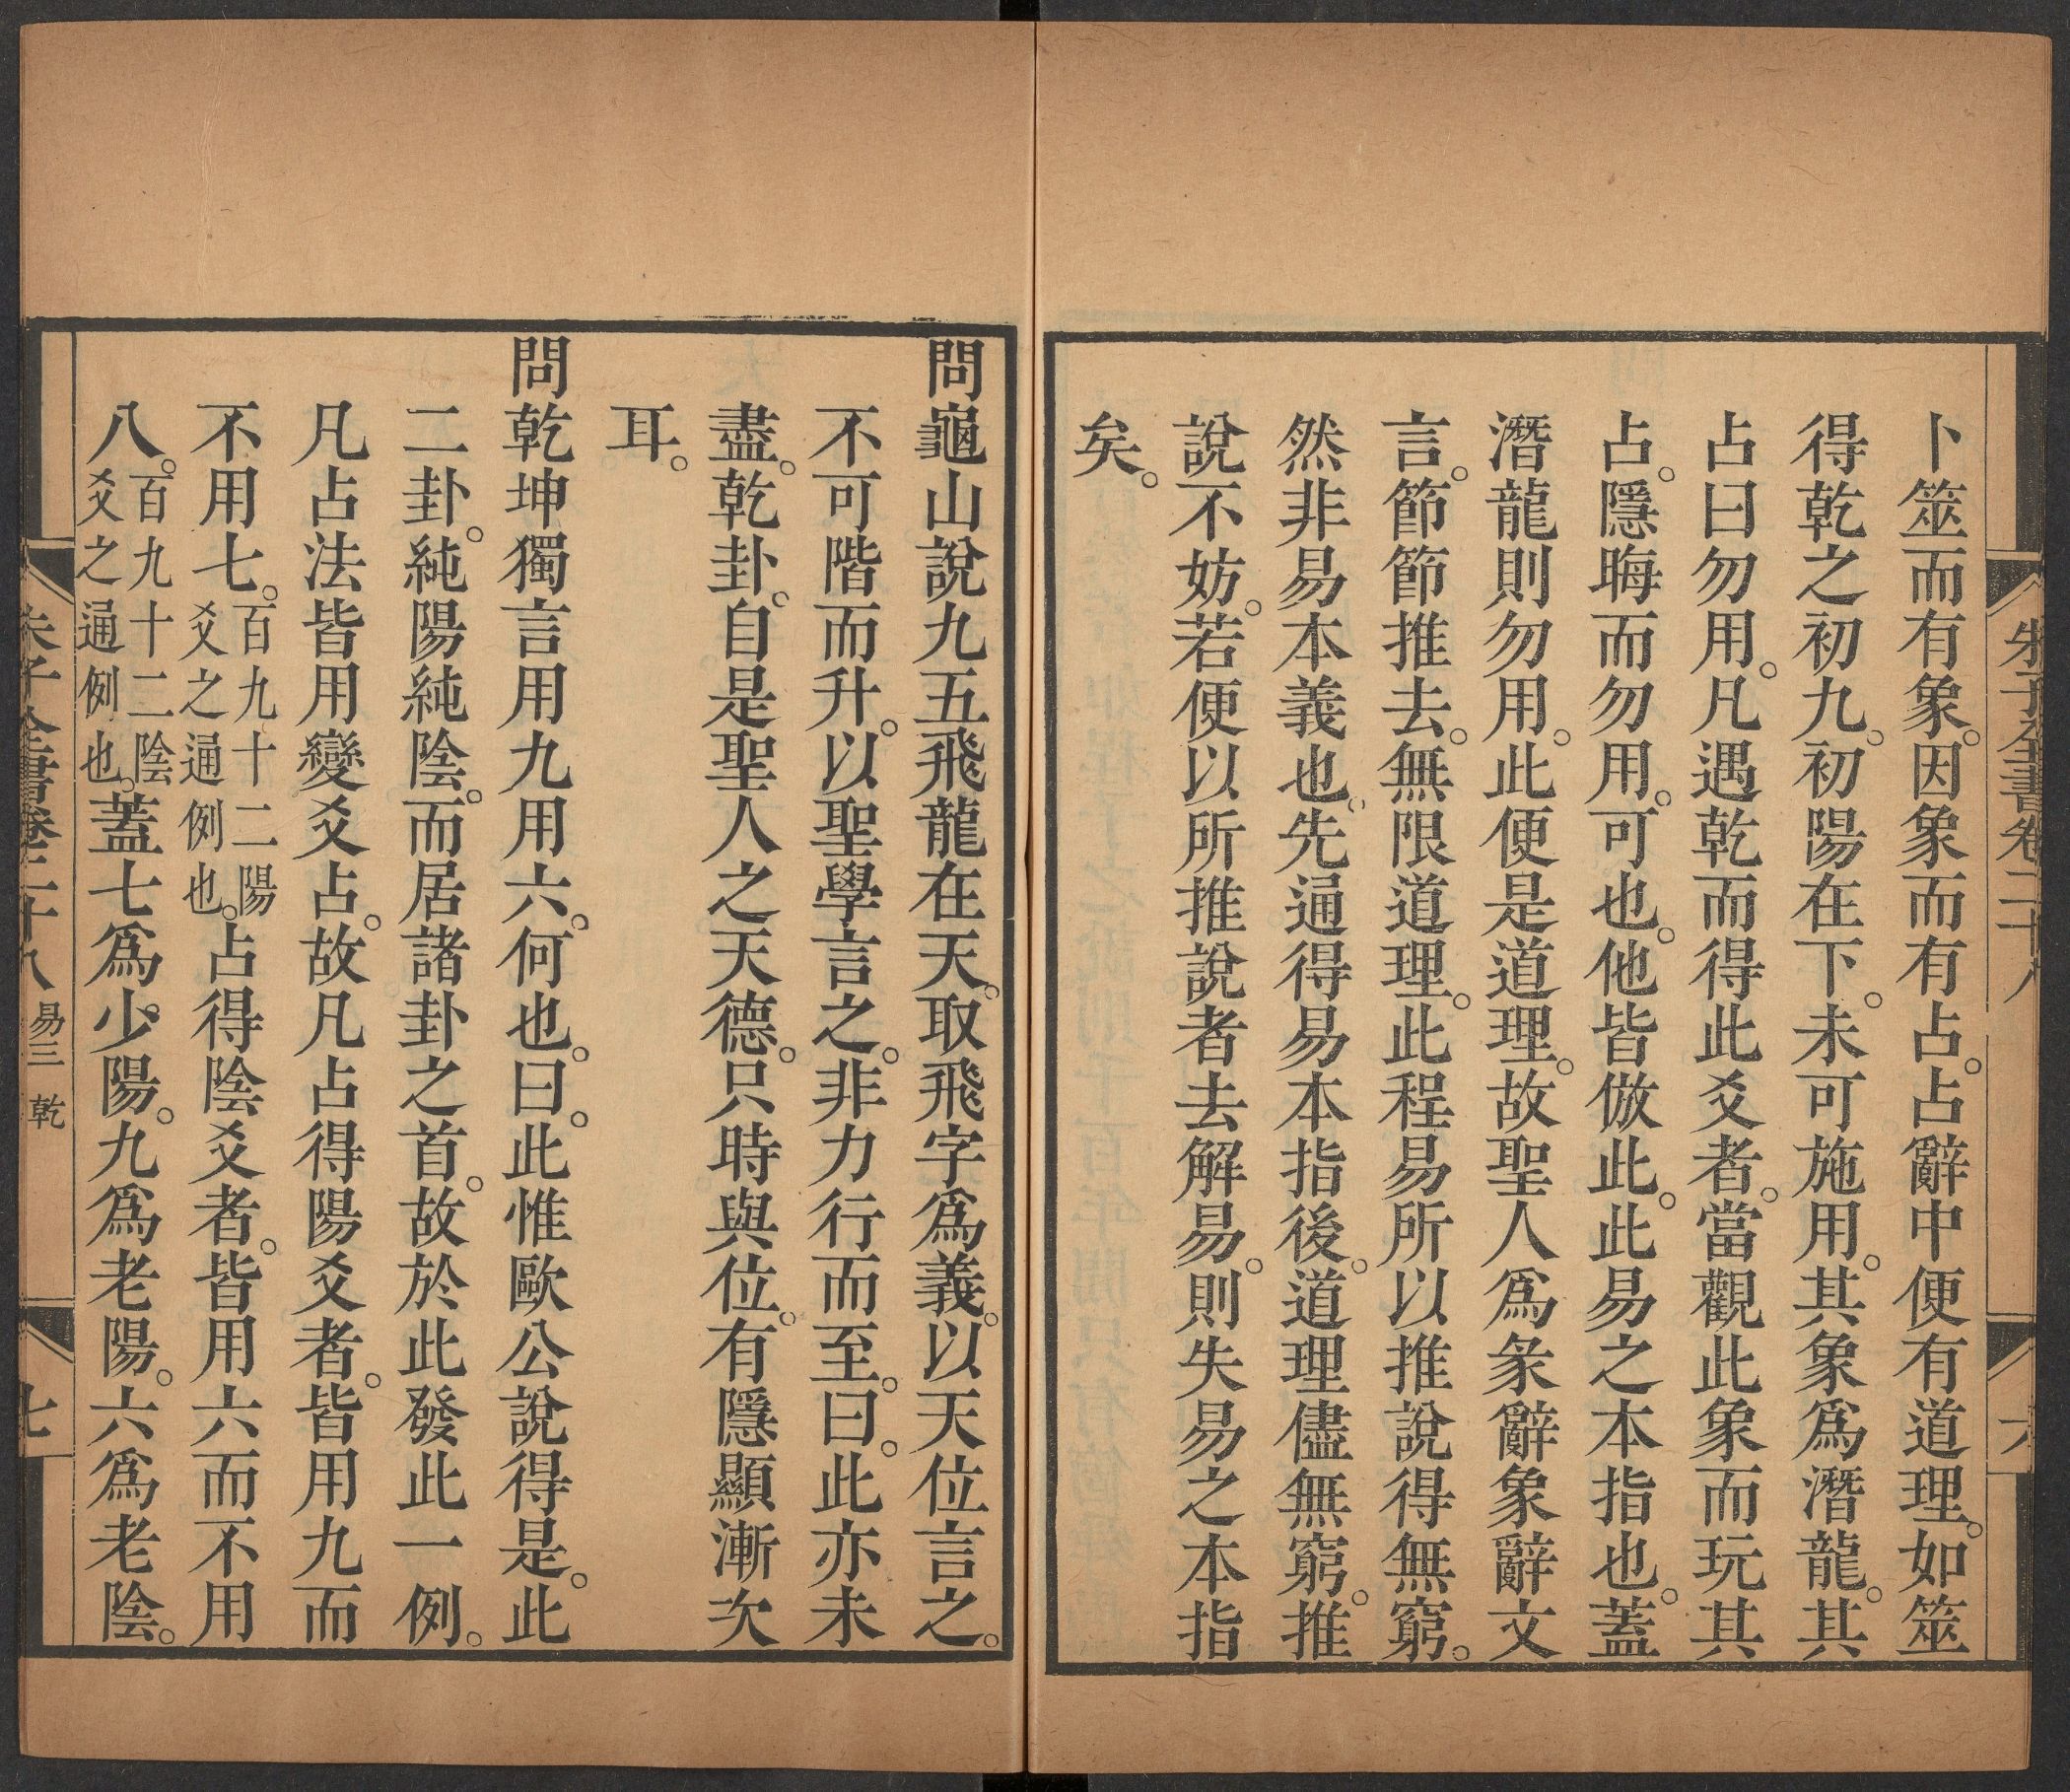 朱子全書卷二十八
六
卜筮而有象。因象而有占。占辭中便有道理。如筮
得乾之初九。初陽在下。未可施用。其象爲潛龍。其
占曰勿用。凡遇乾而得此爻者。當觀此象而玩其
占。隱晦而勿用。可也。他皆倣此。此易之本指也。蓋
潛龍則勿用。此便是道理。故聖人爲彖辭象辭文
言。節節推去。無限道理。此程易所以推說得無窮。
然非易本義也。先通得易本指後。道理儘無窮。推
說不妨。若便以所推說者去解易。則失易之本指
矣。
問龜山說九五飛龍在天。取飛字爲義。以天位言之。
不可階而升。以聖學言之。非力行而至。曰。此亦未
盡。乾卦。自是聖人之天德。只時與位。有隱顯漸次
耳。
問乾坤獨言用九用六。何也。曰。此惟歐公說得是。此
二卦。純陽純陰。而居諸卦之首。故於此發此一例。
凡占法皆用變爻占。故凡占得陽爻者。皆用九而
不用七。百九十二陽爻之通例也。占得陰爻者。皆用六而不用
八。百九十二陰爻之通例也。蓋七爲少陽。九爲老陽。六爲老陰。
朱子全書卷二十八 易三 乾
七